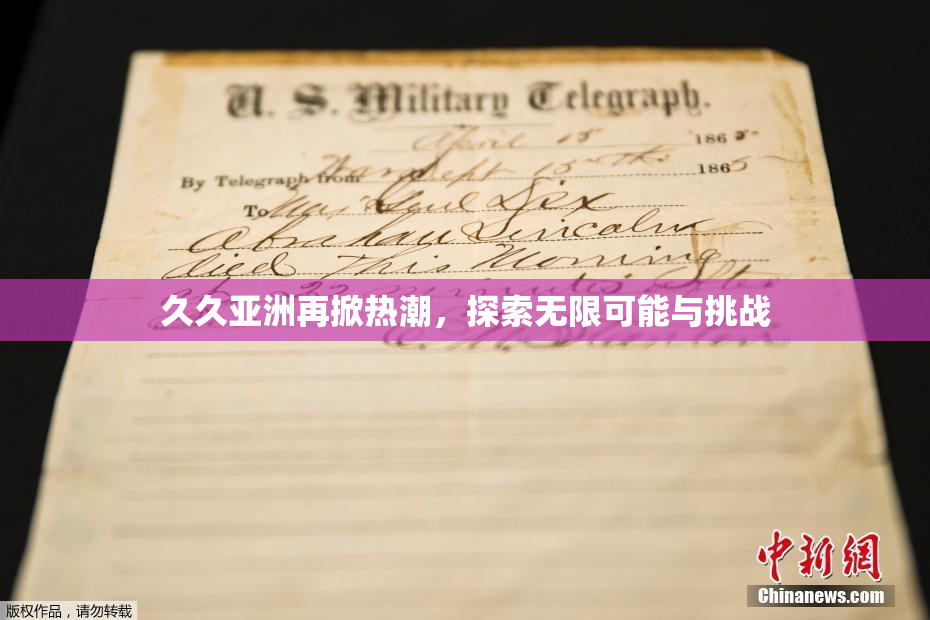 U. S. Military Telegraph.
April 15 1865
By Telegraph from War Dept 15th 1865
To Maj Genl Dix
Abraham Lincoln
died This Morning
at 22 minutes after
久久亚洲再掀热潮，探索无限可能与挑战
E. M. Stanton
中新网
Chinanews.com
版权作品，请勿转载